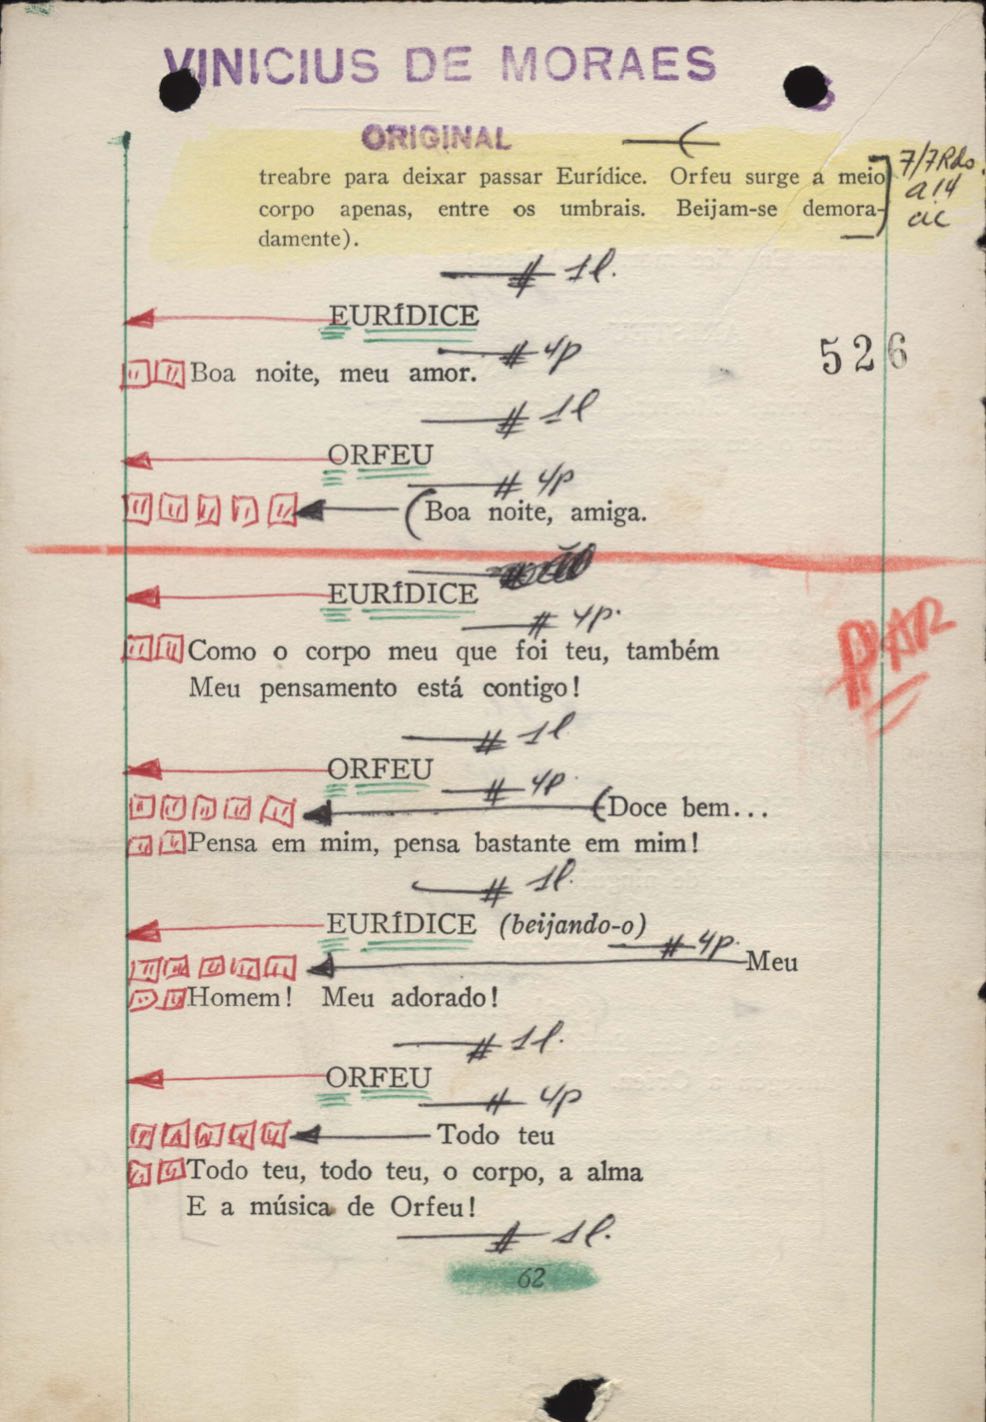 VINICIUS DE MORAES
ORIGINAL
treabre para deixar passar Eurídice. Orfeu surge a meio
corpo apenas, entre os umbrais. Beijam-se demora-
damente).
7/7 Rdo.
a 14
# 1l.
EURÍDICE
# 4p
526
Boa noite, meu amor.
# 1l
ORFEU
# 4p
Boa noite, amiga.
EURÍDICE
# 4p.
PAR
Como o corpo meu que foi teu, também
Meu pensamento está contigo!
# 1l
ORFEU
# 4p.
Doce bem...
Pensa em mim, pensa bastante em mim!
# 1l.
EURÍDICE (beijando-o)
# 4p.
Meu
Homem! Meu adorado!
# 1l.
ORFEU
# 4p
Todo teu
Todo teu, todo teu, o corpo, a alma
E a música de Orfeu!
# 1l.
62